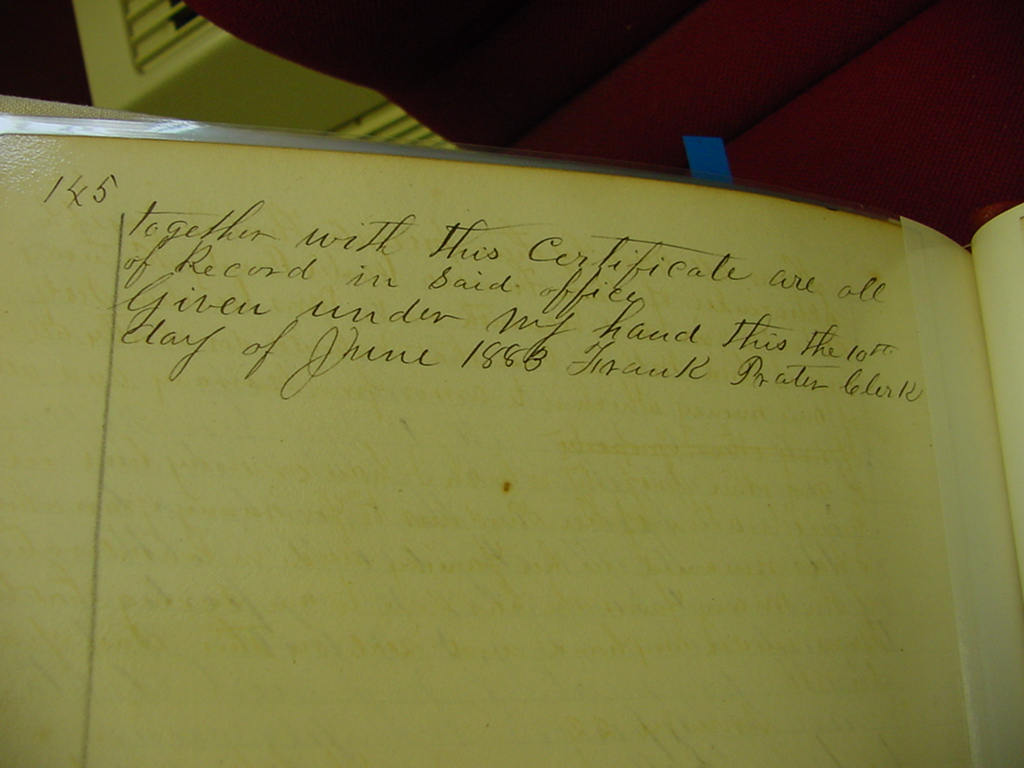 145
together with this Certificate are all
of Record in said office
Given under my hand this the 10th
day of June 1883 Frank Prater Clerk